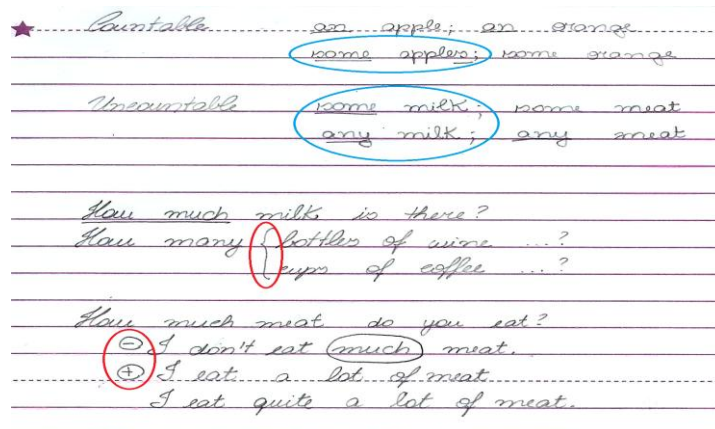 Countable an apple; an orange
some apples; some orange
Uncountable some milk; some meat
any milk; any meat
How much milk is there?
How many { bottles of wine ...?
cups of coffee ...?
How much meat do you eat?
⊖ I don't eat much meat.
⊕ I eat a lot of meat
I eat quite a lot of meat.